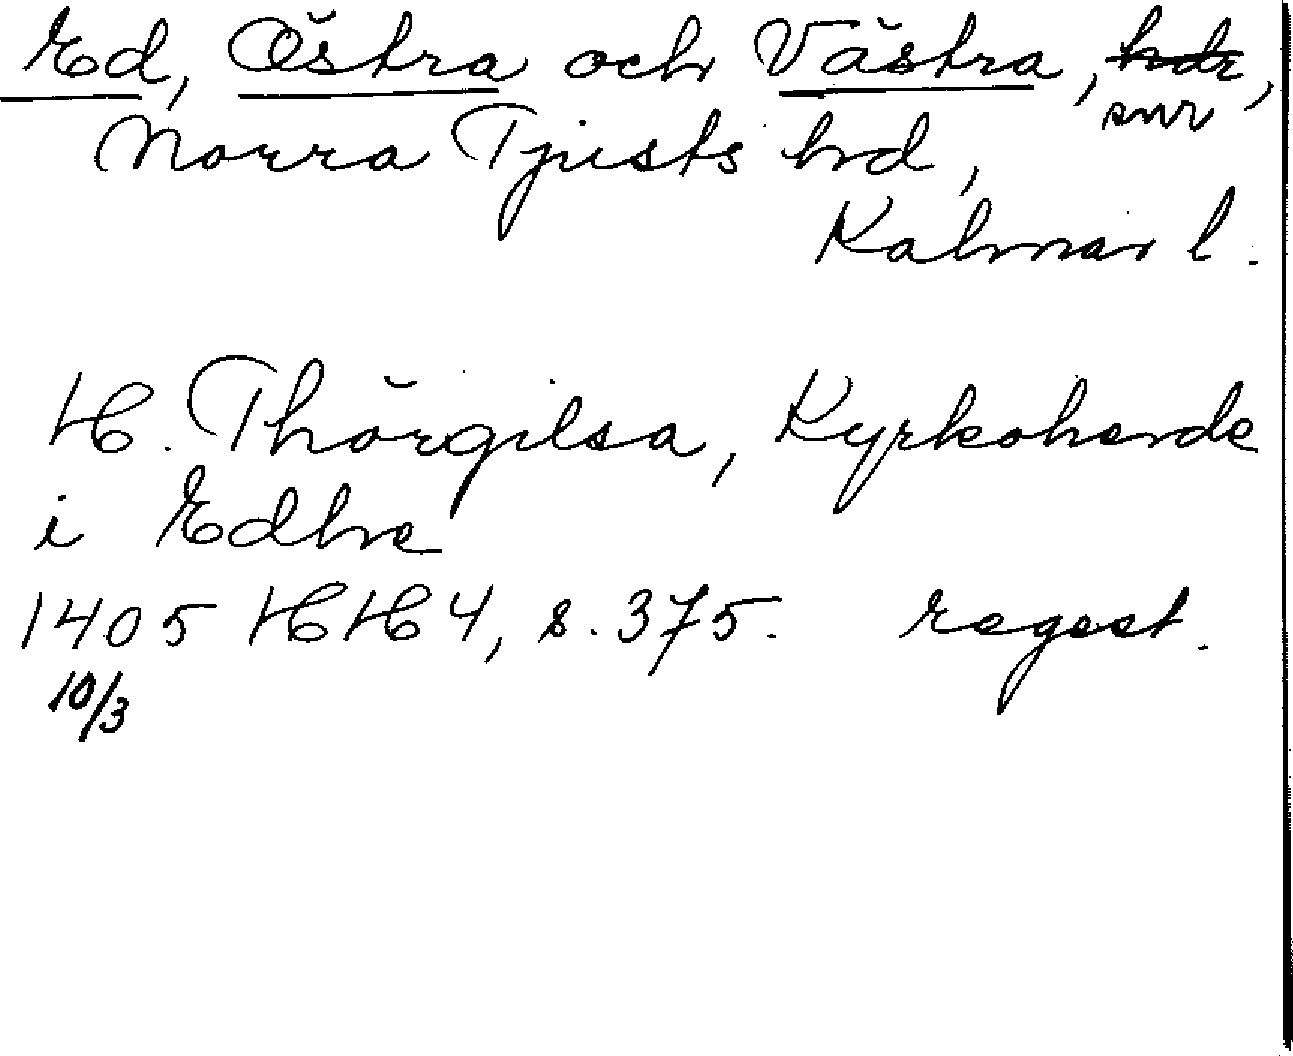 Ed, Östra och Västra, hdr,
snr
Norra Tjusts hd,
Kalmar l.
H. Thörgilsa, Kyrkoherde
i Edhe
1405 HH 4, s. 375. regest.
10/3